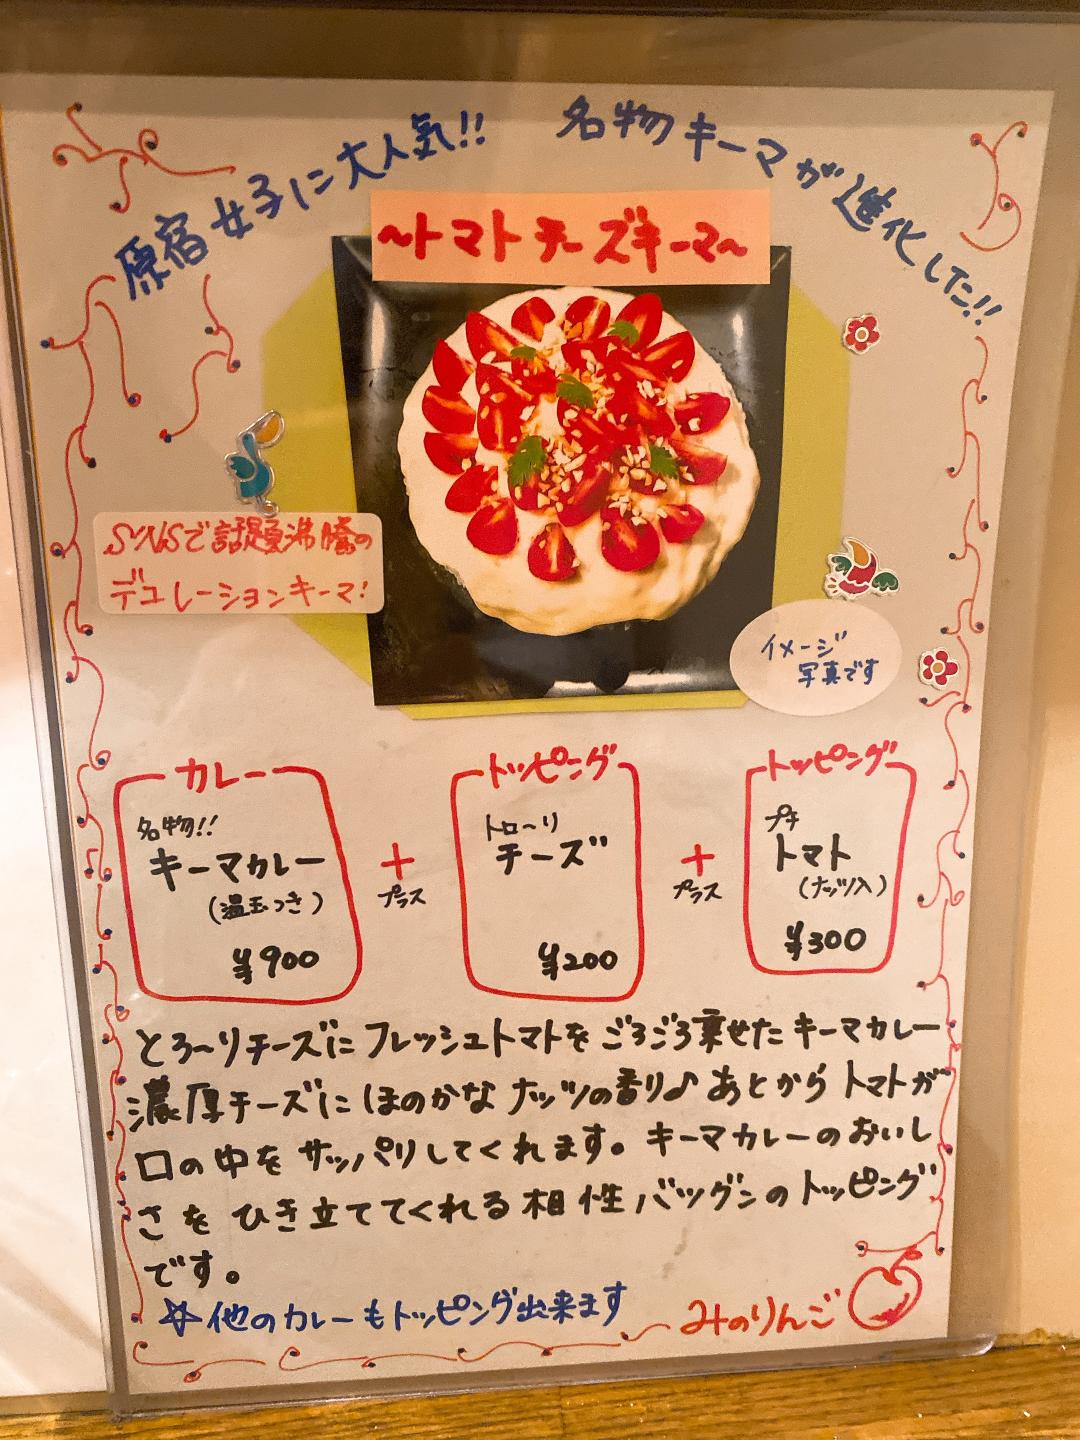 原宿女子に大人気!! 名物キーマが進化した!!
〜トマトチーズキーマ〜
SNSで話題沸騰の
デコレーションキーマ!
イメージ
写真です
カレー
名物!!
キーマカレー
(温玉つき)
¥900
+
プラス
トッピング
トロ〜リ
チーズ
¥200
+
プラス
トッピング
プチ
トマト
(ナッツ入)
¥300
とろ〜りチーズにフレッシュトマトをごろごろ乗せたキーマカレー
濃厚チーズにほのかなナッツの香り♪あとからトマトが
口の中をサッパリしてくれます。キーマカレーのおいし
さをひき立ててくれる相性バツグンのトッピング
です。
☆他のカレーもトッピング出来ます
みのりんご